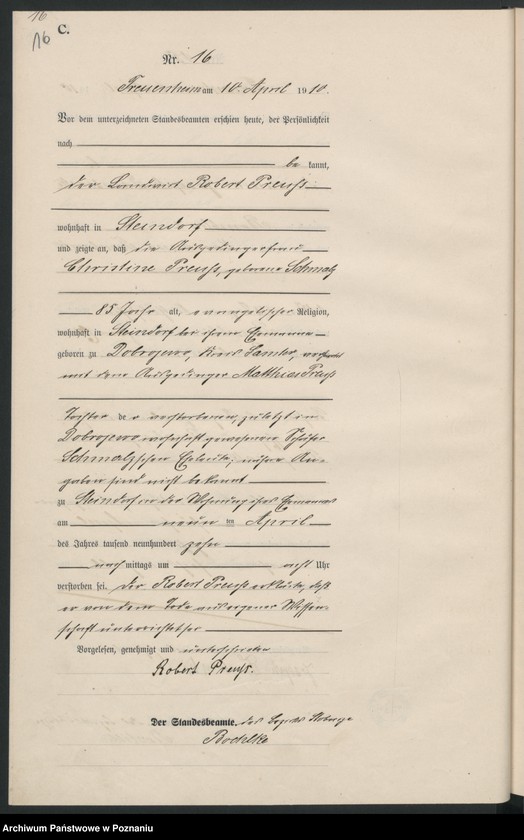 16
16
C.
Nr. 16
Treuenheim am 10. April 1910.
Vor dem unterzeichneten Standesbeamten erschien heute, der Persönlichkeit
nach
be kannt,
der Landwirt Robert Preuß
wohnhaft in Steindorf
und zeigte an, daß die Auszedingerfrau
Christine Preuß, geborene Schmalz
85 Jahr alt, evangelischer Religion,
wohnhaft in Steindorf bei ihrem Ehemanne
geboren zu Dobrojewo, Kreis Samter, verheiratet
mit dem Auszedinger Matthias Preuß
Tochter der verstorbenen, zuletzt in
Dobrojewo wohnhaft gewesenen Schäfer
Schmalz'schen Eheleute; nähere An-
gaben sind nicht bekannt
zu Steindorf in der Wohnung ihres Ehemannes
am neun ten April
des Jahres tausend neunhundert zehn
nach mittags um acht Uhr
verstorben sei. Der Robert Preuß erklärte, daß
er von dem Tode aus eigener Wissen-
schaft unterrichtet sei
Vorgelesen, genehmigt und unterschrieben
Robert Preuß.
Der Standesbeamte.
Archiwum Państwowe w Poznaniu